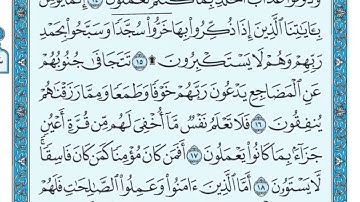 وَذُوقُوا۟ عَذَابَ ٱلْخُلْدِ بِمَا كُنتُمْ تَعْمَلُونَ ١٤ إِنَّمَا يُؤْمِنُ
بِـَٔايَٰتِنَا ٱلَّذِينَ إِذَا ذُكِّرُوا۟ بِهَا خَرُّوا۟ سُجَّدًا وَسَبَّحُوا۟ بِحَمْدِ
رَبِّهِمْ وَهُمْ لَا يَسْتَكْبِرُونَ ۩ ١٥ تَتَجَافَىٰ جُنُوبُهُمْ
عَنِ ٱلْمَضَاجِعِ يَدْعُونَ رَبَّهُمْ خَوْفًا وَطَمَعًا وَمِمَّا رَزَقْنَٰهُمْ
يُنفِقُونَ ١٦ فَلَا تَعْلَمُ نَفْسٌ مَّآ أُخْفِىَ لَهُم مِّن قُرَّةِ أَعْيُنٍ
جَزَآءًۢ بِمَا كَانُوا۟ يَعْمَلُونَ ١٧ أَفَمَن كَانَ مُؤْمِنًا كَمَن كَانَ فَاسِقًا ۚ
لَّا يَسْتَوُۥنَ ١٨ أَمَّا ٱلَّذِينَ ءَامَنُوا۟ وَعَمِلُوا۟ ٱلصَّٰلِحَٰتِ فَلَهُمْ